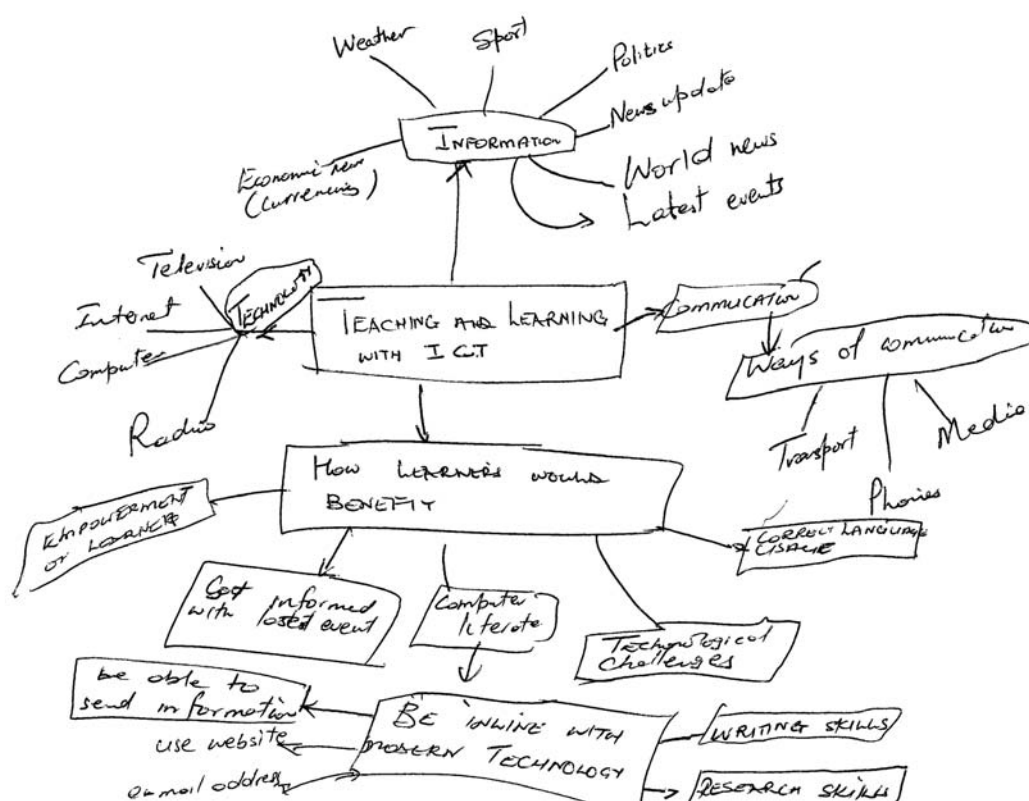 Weather
Sport
Politics
News update
INFORMATION
Economic news
(Currencies)
World news
Latest events
Television
Internet
Computer
Radio
TECHNOLOGY
TEACHING AND LEARNING
WITH ICT
COMMUCATION
Ways of communication
Transport
Phones
Media
HOW LEARNERS WOULD
BENEFIT
EMPOWERMENT
OF LEARNERS
CORRECT LANGUAGE
USAGE
Get informed
with latest event
Computer
literate
Technological
Challenges
be able to
send information
use website
email address
BE INLINE WITH
MODERN TECHNOLOGY
WRITING SKILLS
RESEARCH SKILLS